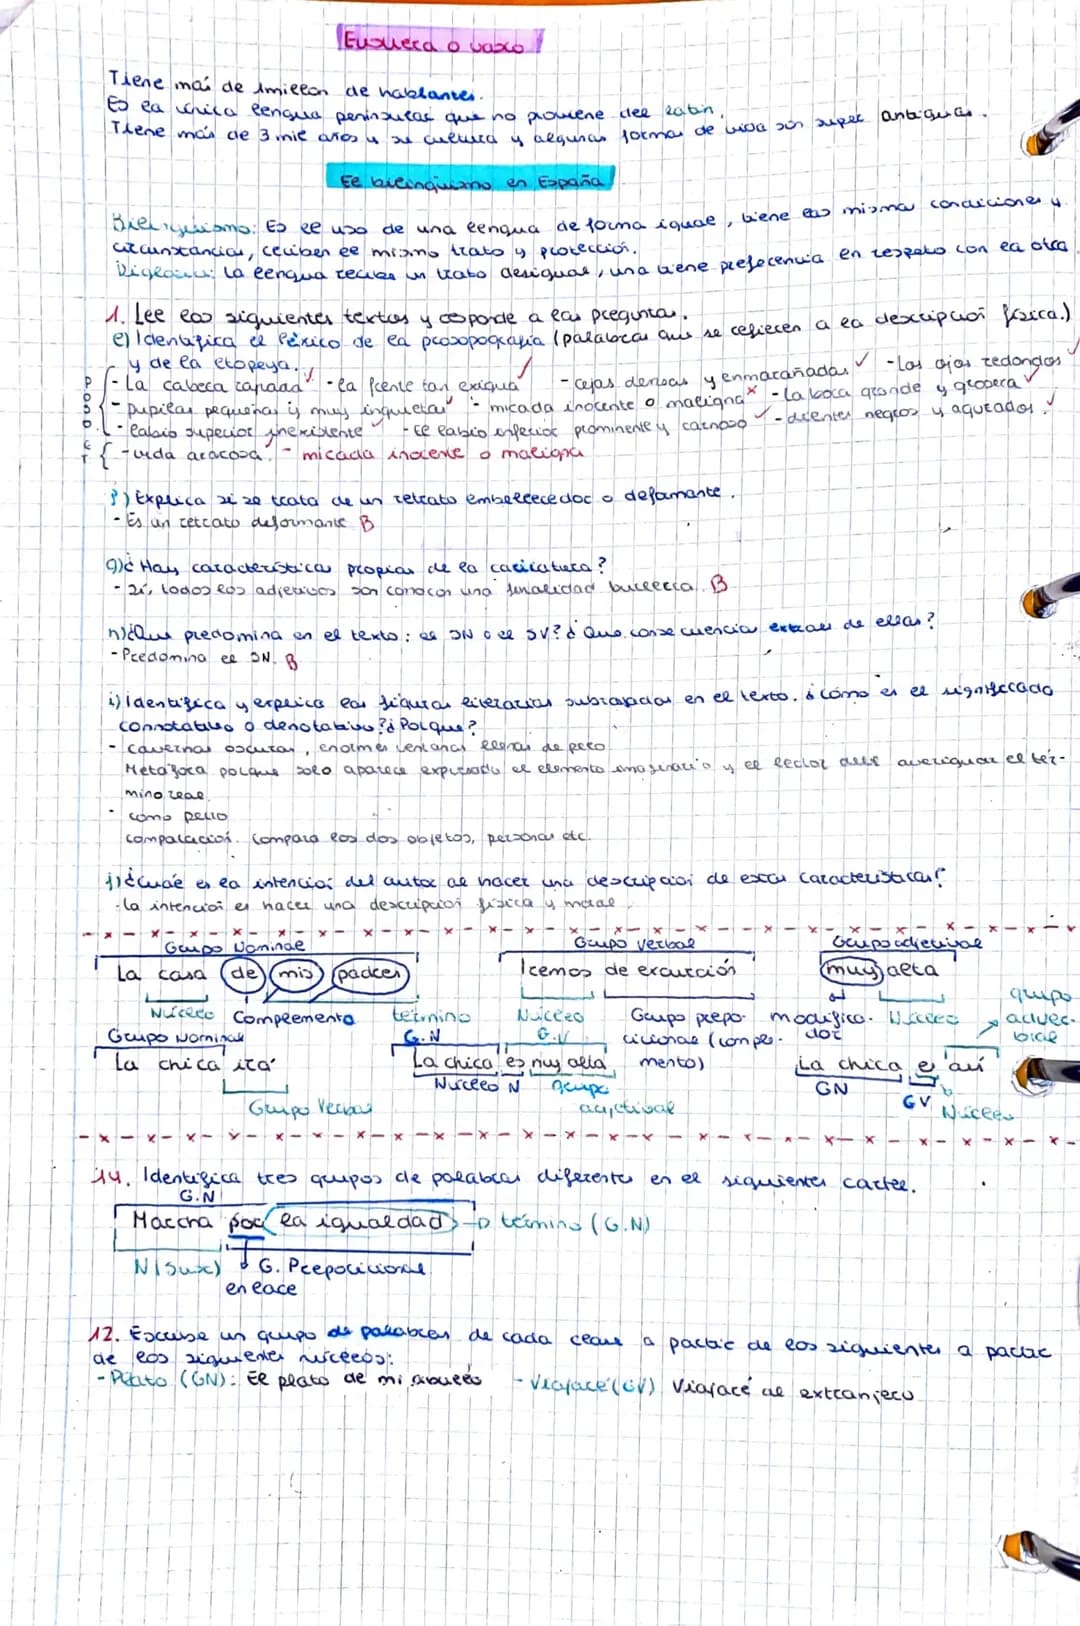 Euskera o vasco
Tiene mas de 1 millon de hablantes.
Es la única lengua peninsular que no proviene del latin.
Tiene más de 3 mil años y su cultura y algunas formas de vida son super antiguas.
El bilinguismo en España
Bilinguismo: Es el uso de una lengua de forma igual, tiene las mismas condiciones y
circunstancias, reciben el mismo trato y protección.
Diglosia: La lengua recibe un trato desigual, una tiene preferencia en respeto con la otra
1. Lee los siguientes textos y responde a las preguntas.
e) Identifica el léxico de la prosopografía (palabras que se refieren a la descripción física.)
y de la etopeya.
- La cabeca rapada - la frente tan exigua - cejas densas y enmarañadas - Los ojos redondos
- pupilas pequeñas y muy inquietas - mirada inocente o maligna x - La boca grande y grosera
- labio superior inexistente - El labio inferior prominente y carnoso - dientes negros y agurados.
- vida - mirada inocente o maligna
f) Explica si se trata de un retrato embellecedor o deformante.
- Es un retrato deformante B
g) ¿Hay características propias de la caricatura?
- Si, todos los adjetivos son con una finalidad burlesca. B
h) ¿Que predomina en el texto: el SN o el SV? ¿Que consecuencias extraes de ellas?
- Predomina el SN. B
i) Identifica y explica las figuras literarias subrayadas en el texto. ¿cómo es el significado
connotativo o denotativo? ¿Porque?
- cavernas oscuras, enormes ventanas llenas de pelo
Metáfora porque solo aparece expresado el elemento imaginario y el lector debe averiguar el tér-
mino real.
- como perro
comparación. Compara los dos objetos, personas etc.
j) ¿Cuál es la intención del autor al hacer una descripción de estas características?
- La intención es hacer una descripción física y moral.
Grupo Nominal Grupo verbal Grupo adjetival
La casa de mis padres Iremos de excurción muy alta
Núcleo Complemento término Núcleo Grupo prepo- modifica- Núcleo grupo
Grupo Nominal G.N G.V cicional (comple- dor adver-
bial
La chica irá La chica es muy alta mento) La chica es así
Núcleo N grupo GN
Grupo Verbal adjetival GV Núcleo
14. Identifica tres grupos de palabras diferentes en el siguientes cartel.
G.N
Marcha por la igualdad término (G.N)
N (Sus) G. Prepocicional
enlace
12. Escribe un grupo de palabras de cada clase a partir de los siguientes a partir
de los siguientes núcleos:
- Plato (GN): El plato de mi abuelo - Viajaré (GV) Viajaré al extranjero